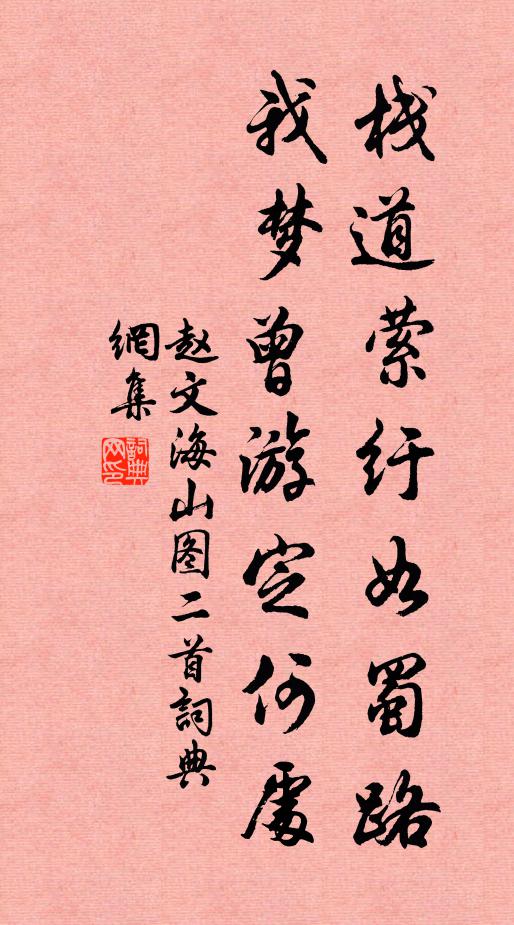 栈道萦纡如蜀路
我梦曾游定何处
赵文海山图二首詞典
網集
詞典網印